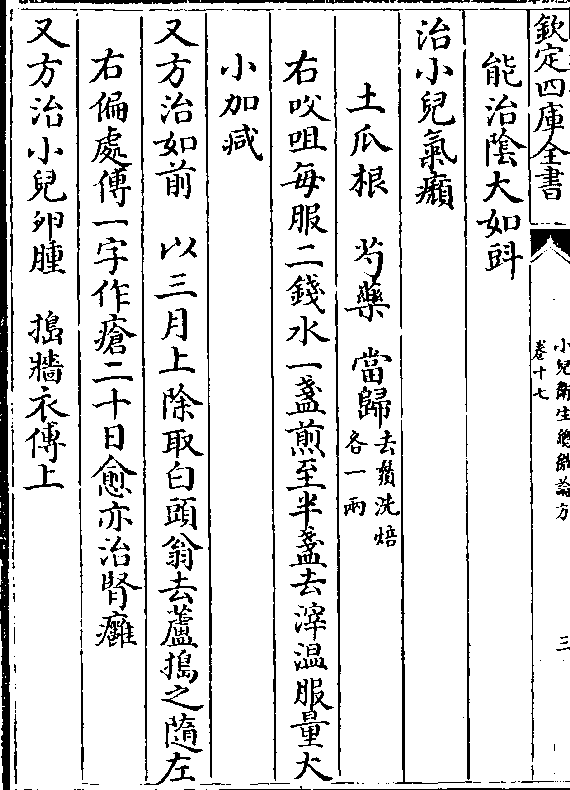 欽定四庫全書
小兒衛生總微論方
卷十七
三
能治陰大如㪷
治小兒氣㿗
土瓜根 芍藥 當歸去鬚洗焙各一兩
右㕮咀每服二錢水一盞煎至半盞去滓温服量大
小加減
又方治如前 以三月上除取白頭翁去蘆搗之隨左
右偏處傅一字作瘡二十日愈亦治腎癰
又方治小兒卵腫 搗牆衣傅上